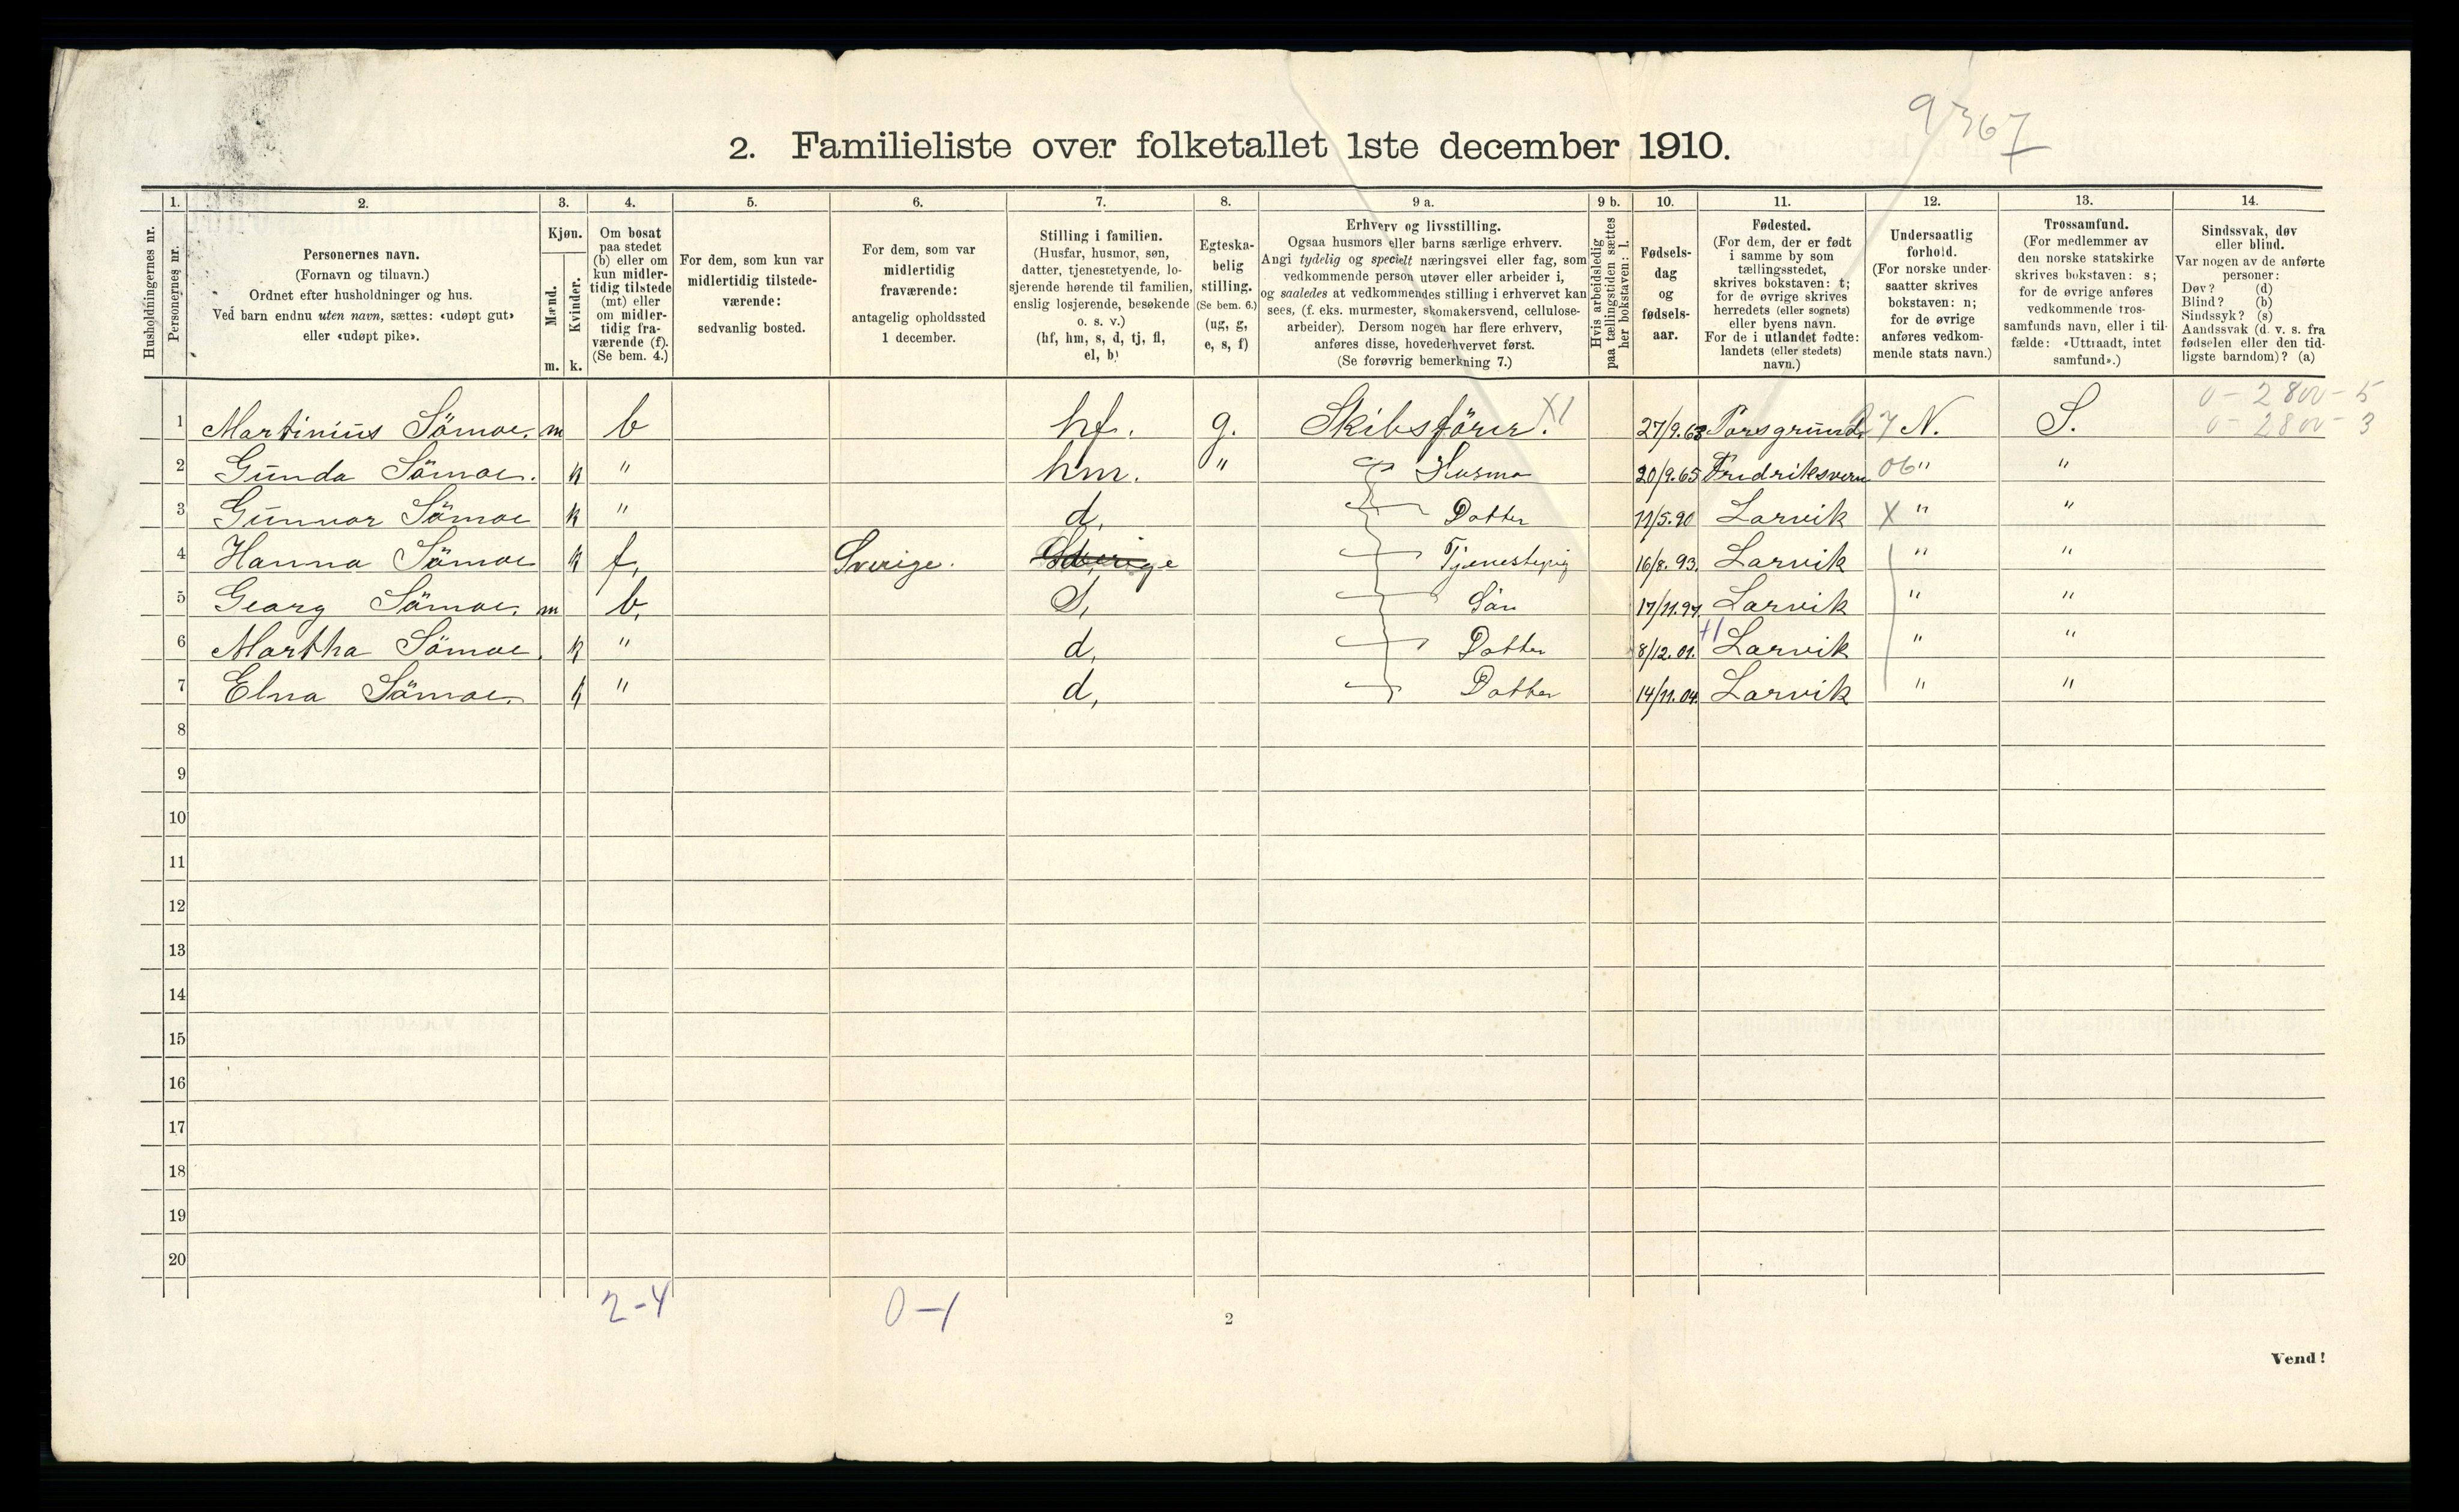 9367
2. Familieliste over folketallet 1ste december 1910.
1. 2. 3. 4. 5. 6. 7. 8. 9 a. 9 b. 10. 11. 12. 13. 14.
Husholdningernes nr.
Personernes nr.
Personernes navn.
(Fornavn og tilnavn.)
Ordnet efter husholdninger og hus.
Ved barn endnu uten navn, sættes: «udøpt gut»
eller «udøpt pike».
Kjøn.
Mænd.
Kvinder.
m. k.
Om bosat
paa stedet
(b) eller om
kun midler-
tidig tilstede
(mt) eller
om midler-
tidig fra-
værende (f).
(Se bem. 4.)
For dem, som kun var
midlertidig tilstede-
værende:
sedvanlig bosted.
For dem, som var
midlertidig
fraværende:
antagelig opholdssted
1 december.
Stilling i familien.
(Husfar, husmor, søn,
datter, tjenestetyende, lo-
sjerende hørende til familien,
enslig losjerende, besøkende
o. s. v.)
(hf, hm, s, d, tj, fl,
el, b)
Egteska-
belig
stilling.
(Se bem. 6.)
(ug, g,
e, s, f)
Erhverv og livsstilling.
Ogsaa husmors eller barns særlige erhverv.
Angi tydelig og specielt næringsvei eller fag, som
vedkommende person utøver eller arbeider i,
og saaledes at vedkommendes stilling i erhvervet kan
sees, (f. eks. murmester, skomakersvend, cellulose-
arbeider). Dersom nogen har flere erhverv,
anføres disse, hovederhvervet først.
(Se forøvrig bemerkning 7.)
Hvis arbeidsledig
paa tællingstiden sættes
her bokstaven: l.
Fødsels-
dag
og
fødsels-
aar.
Fødested.
(For dem, der er født
i samme by som
tællingsstedet,
skrives bokstaven: t;
for de øvrige skrives
herredets (eller sognets)
eller byens navn.
For de i utlandet fødte:
landets (eller stedets)
navn.)
Undersaatlig
forhold.
(For norske under-
saatter skrives
bokstaven: n;
for de øvrige
anføres vedkom-
mende stats navn.)
Trossamfund.
(For medlemmer av
den norske statskirke
skrives bokstaven: s;
for de øvrige anføres
vedkommende tros-
samfunds navn, eller i til-
fælde: «Uttraadt, intet
samfund».)
Sindssvak, døv
eller blind.
Var nogen av de anførte
personer:
Døv? (d)
Blind? (b)
Sindssyk? (s)
Aandssvak (d. v. s. fra
fødselen eller den tid-
ligste barndom)? (a)
0 - 2800 - 5
0 - 2800 - 3
1 Martinius Sömoe. m b hf. g. Skibsförer. X1 27/9.63 Porsgrund 7 N. S.
2 Gunda Sömoe. k " hm. " Husmo 20/9.65 Fredriksvern 06 " "
3 Gunvor Sömoe k " d. Datter 11/5.90 Larvik X " "
4 Hanna Sömoe k f, Sverige. Sverige Tjenestepig 16/8.93. Larvik " "
5 Georg Sömoe. m b. S, Sön 17/11.97. Larvik " "
6 Martha Sömoe. k " d. Datter 8/12.01. Larvik " "
7 Elna Sömoe. k " d, Datter 14/11.04. Larvik " "
8
9
10
11
12
13
14
15
16
17
18
19
20
2-4 0-1
2
Vend!